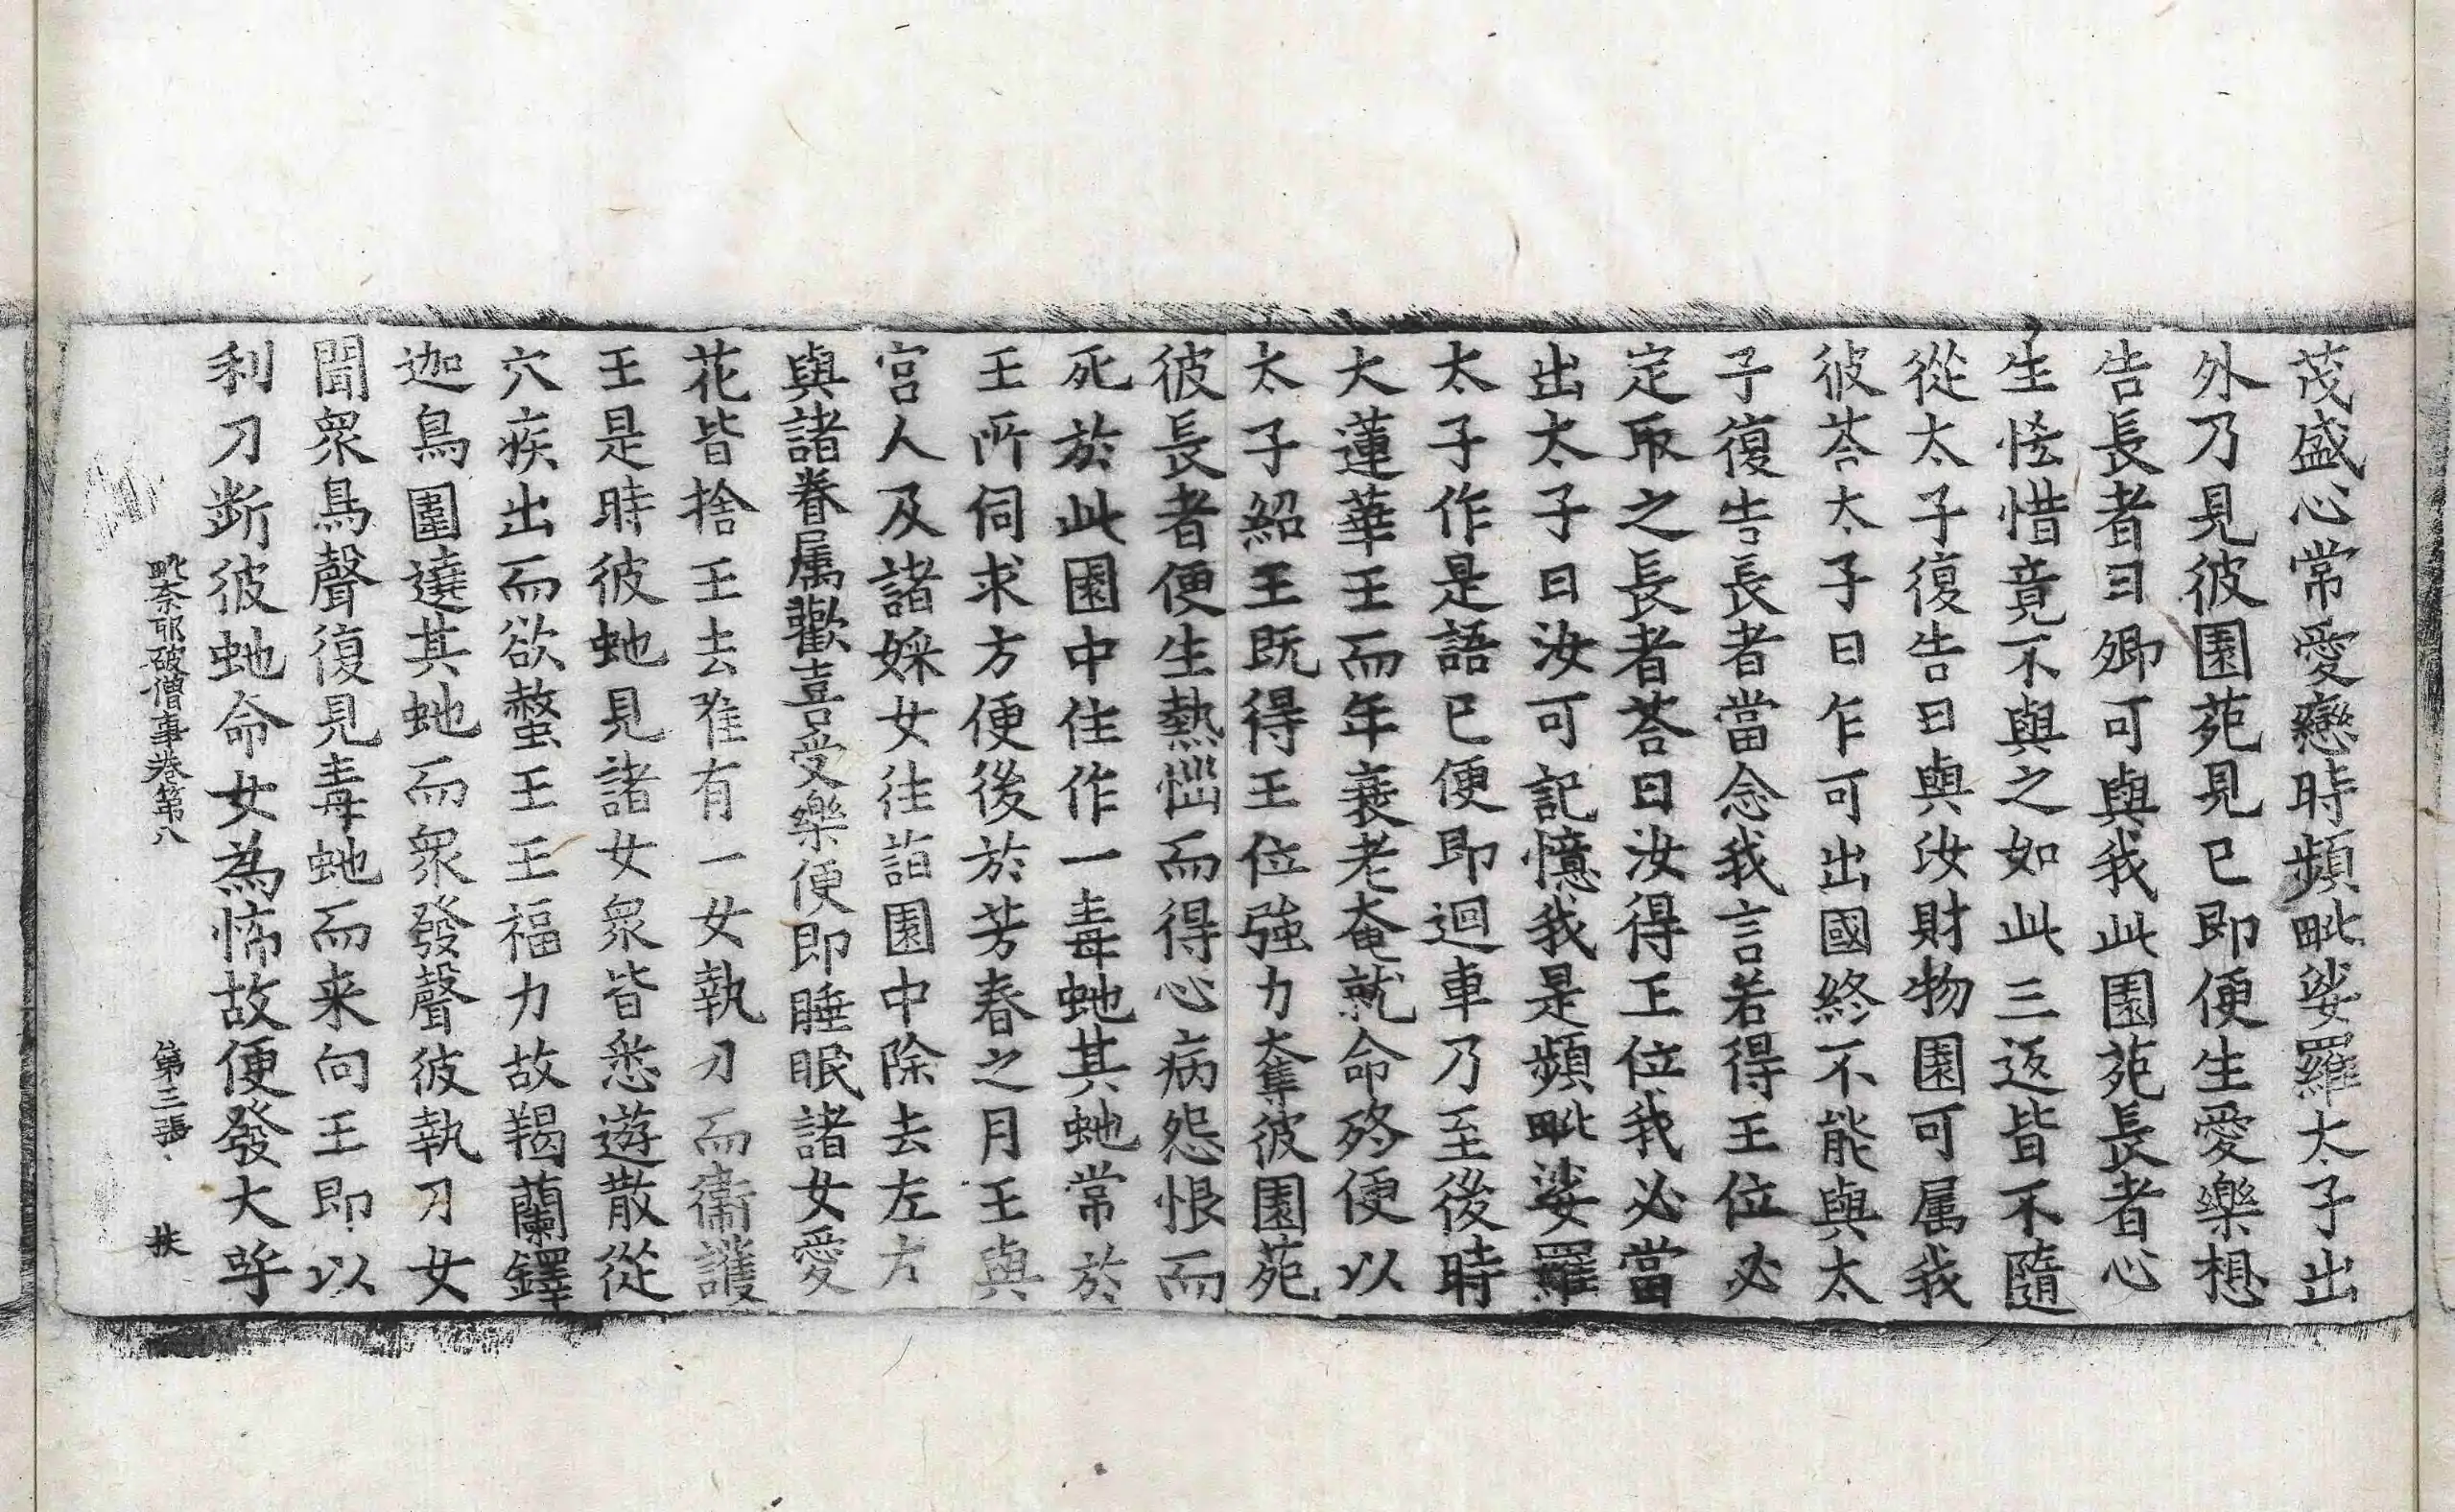 茂盛心常愛戀時頻毗娑羅太子出
外乃見彼園苑見已即便生愛樂想
告長者曰卿可與我此園苑長者心
生恡惜竟不與之如此三返皆不隨
從太子復告曰與汝財物園可属我
彼荅太子曰乍可出國終不能與太
子復告長者當念我言若得王位必
定取之長者荅曰汝得王位我必當
出太子曰汝可記憶我是頻毗娑羅
太子作是語已便即迴車乃至後時
大蓮華王而年衰老奄就命終便以
太子紹王既得王位強力奪彼園苑
彼長者便生熱惱而得心病怨恨而
死於此園中住作一毒虵其虵常於
王所伺求方便後於芳春之月王與
宮人及諸婇女徃詣園中除去左右
與諸眷属歡喜受樂便即睡眠諸女愛
花皆捨王去唯有一女執刀而衛護
王是時彼虵見諸女衆皆悉遊散從
穴疾出而欲螫王王福力故羯蘭鐸
迦鳥圍遶其虵而衆發聲彼執刀女
聞衆鳥聲復見毒虵而来向王即以
利刀斷彼虵命女為怖故便發大呼
毗奈耶破僧事卷第八 第三張 扶